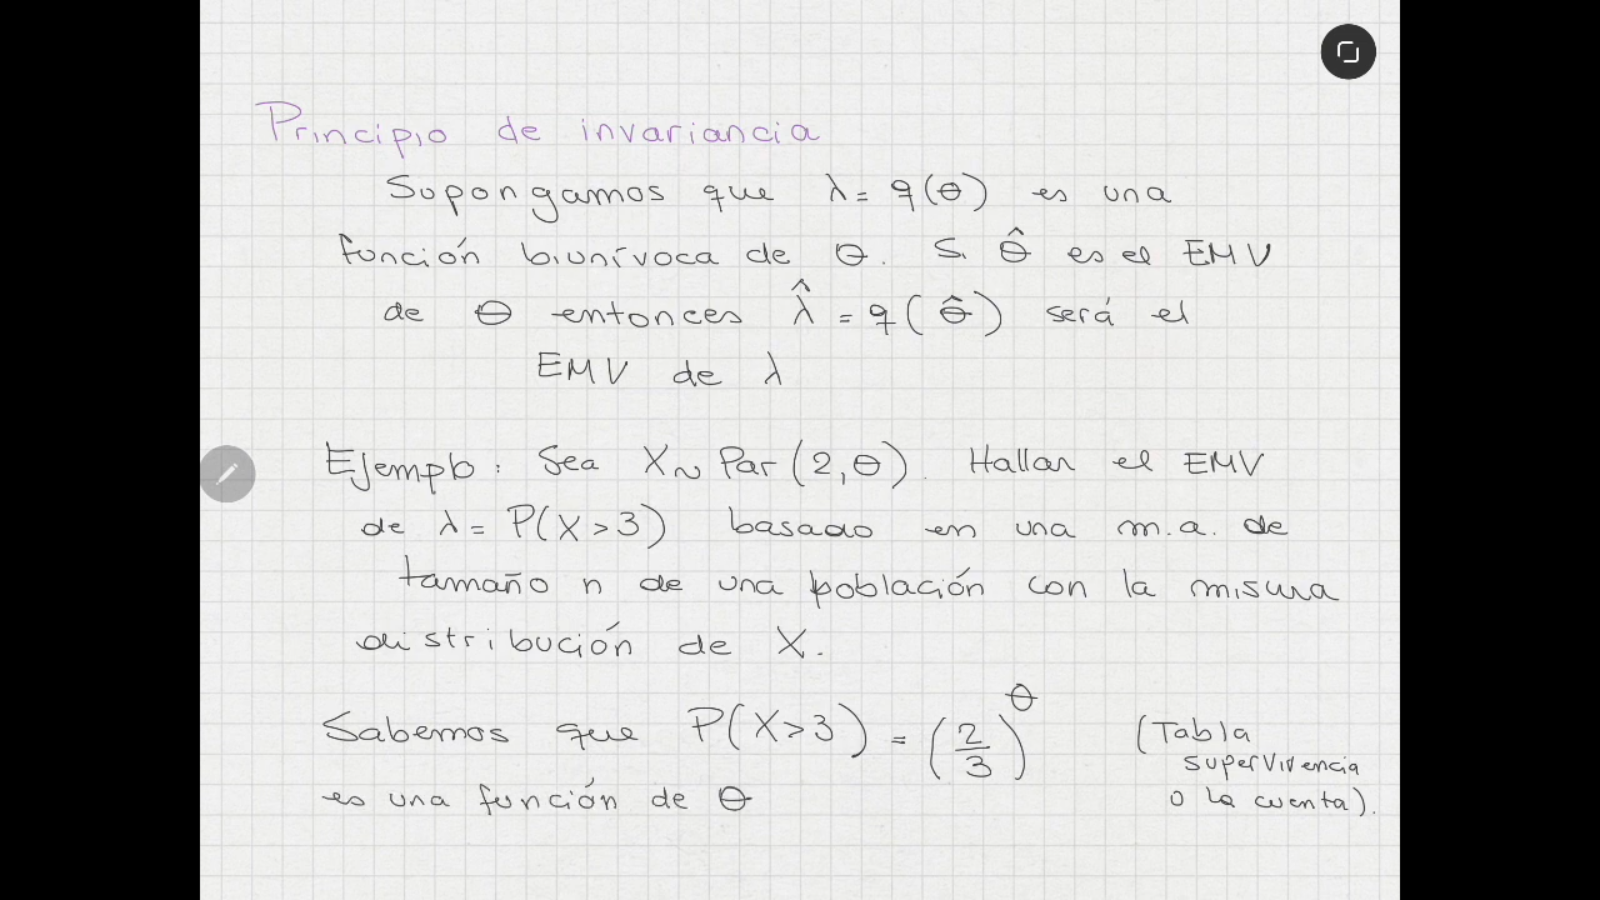 Principio de invariancia
Supongamos que λ = q(θ) es una
función biunívoca de θ. Si θ̂ es el EMV
de θ entonces λ̂ = q(θ̂) será el
EMV de λ
Ejemplo: Sea X ~ Par(2, θ). Hallar el EMV
de λ = P(X > 3) basado en una m.a. de
tamaño n de una población con la misma
distribución de X.
Sabemos que P(X > 3) = (2/3)^θ (Tabla
supervivencia
es una función de θ o la cuenta).